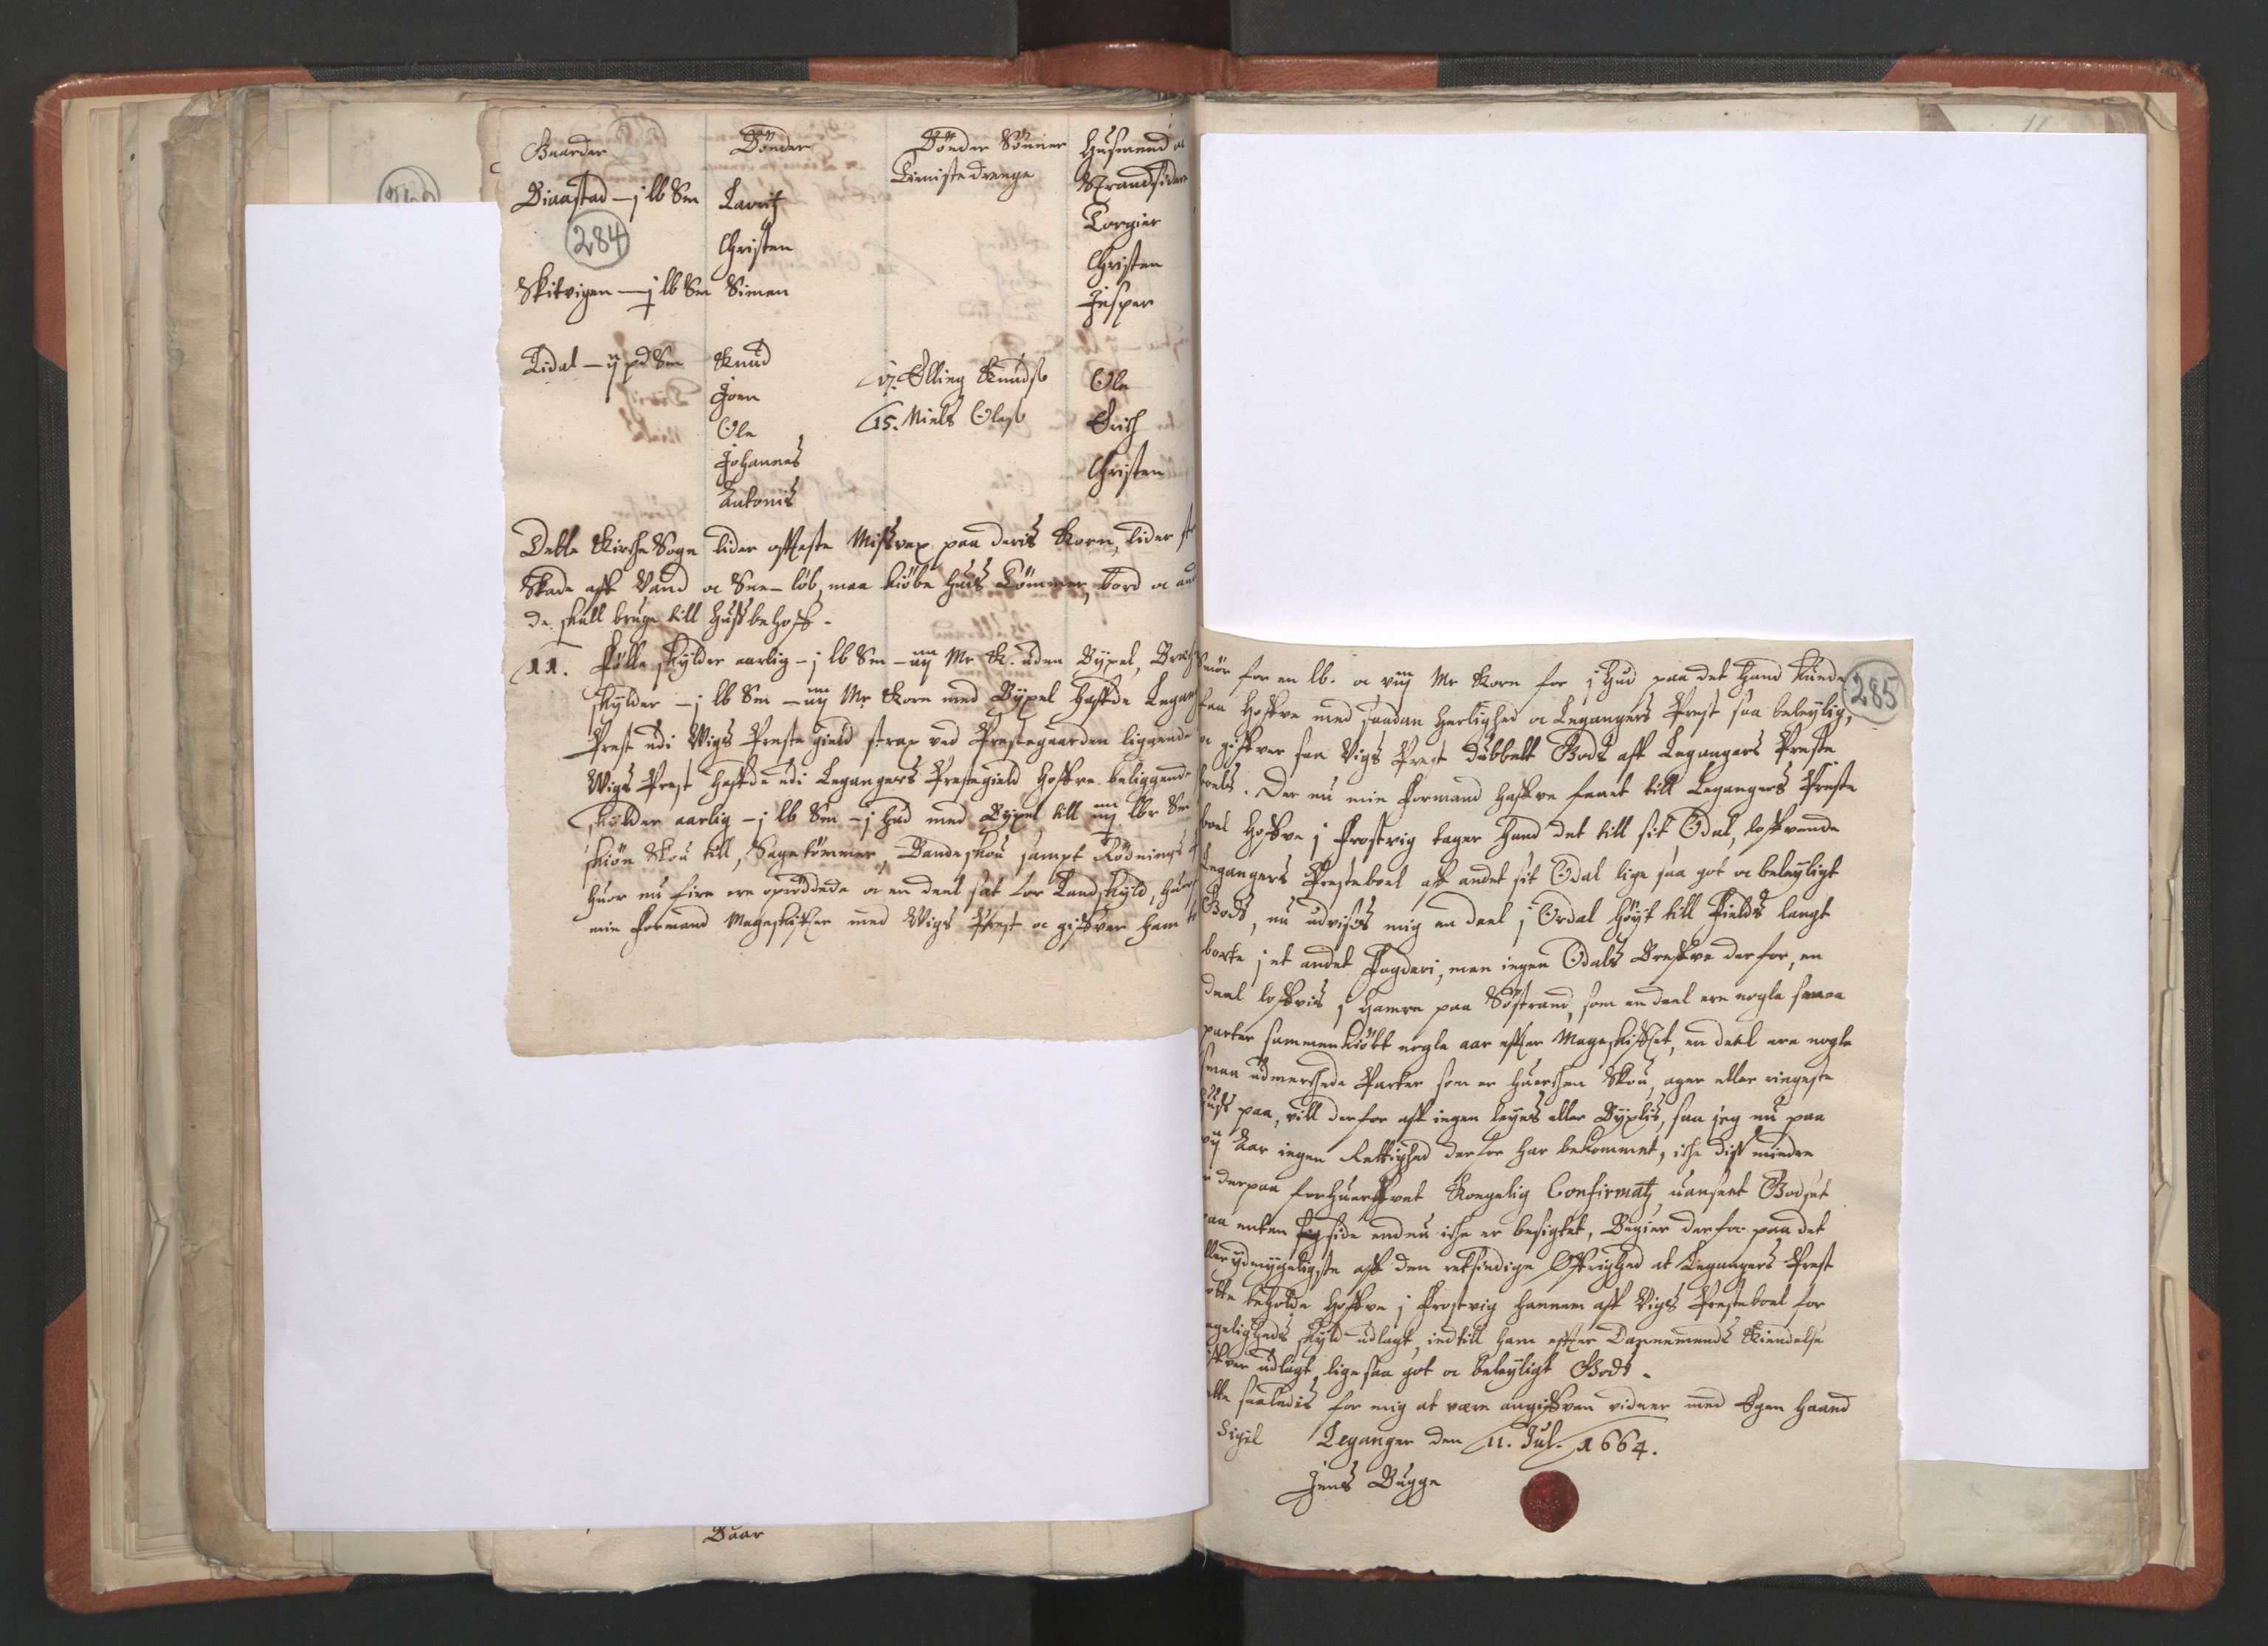 Gaarder Bönder Bönder Sönner Husmend oc
Tienistedrenge Strandsidere
Diaastad – j lb Sm Lauritz Torgier
284 Christen Christen
Skitvigen – j lb Sm Simen Jesper
Tidal – ij pd Sm Knud
Joen 17. Elling Knuds Ole
Ole 15. Niels Oles Erich
Johannes Christen
Antonis
Dette Kirche Sogn lider offteste Misvex paa deris Korn, lider
Skade aff Vand oc Snee-löb, maa kiöbe Huus Tömmer, bord oc
de skall bruge till Huussbehoff.
11. skylder aarlig – j lb Sm – iiij Mr K. uden Byxel,
skylder – j lb Sm – iiij Mr Korn med Byxel haffde
Prest udi Wigs Preste gield strax ved Prestegaarden liggende
Wigs Prest haffde udi Legangers Prestegield Hoffve beliggende
skylder aarlig – j lb Sm – j Hud med Byxel till iiij lbr Sm
skiön Skou till, Sage tömmer, Bandeskou sampt Rödnings
huor nu fire ere opröddede oc en deel sat for Landskyld,
min Formand Mageskiffter med Wigs Prest oc giffver ham
Smör for en lb. oc viij Mr Korn for j Hud paa det Hand kunde
285
faa Hoffve med saadan herlighed oc Legangers Prest saa beleylig,
oc giffver saa Vigs Prest dubbelt Gods aff Legangers Preste
boels. Der nu min Formand haffve faaet till Legangers Preste
boel Hoffve j Frostvig tager Hand det till sit Odal, loffvende
Legangers Presteboel aff andet sit Odal lige saa got oc beleyligt
Gods, nu udvises mig en deel j Ordal höyt till Fields langt
borte j et andet Fogderi, men ingen Odals Breffve derfor, en
deel loffvis j Hamre paa Söstrand, som en deel ere nogle smaa
parter sammenkiöbt nogle aar effter Mageskifftet, en deel ere nogle
smaa udmerchede Parter som er huerchen Skou, ager eller ringeste
Huss paa, vill derfor aff ingen leyes eller Byxlis, saa jeg nu paa
Aar ingen Rettighed derfor har bekommet, iche dis mindre
er derpaa forhuerffvet Kongelig Confirmatz uanseet Godset
paa enten side endnu iche er besigtet, Begier derfor paa det
allerydmygeligste aff den retsindige Öffrighed at Legangers Prest
motte beholde Hoffve j Frostvig hannem aff Vigs Presteboel for
leyligheds skyld udlagt, indtill ham effter Dannemends Kiendelse
bliffver udlagt lige saa got oc beleyligt Gods.
Dette saaledis for mig at være angiffven vidner med Egen Haand
Sigil Leganger den 11. Jul. 1664.
Jens Bugge
Daar